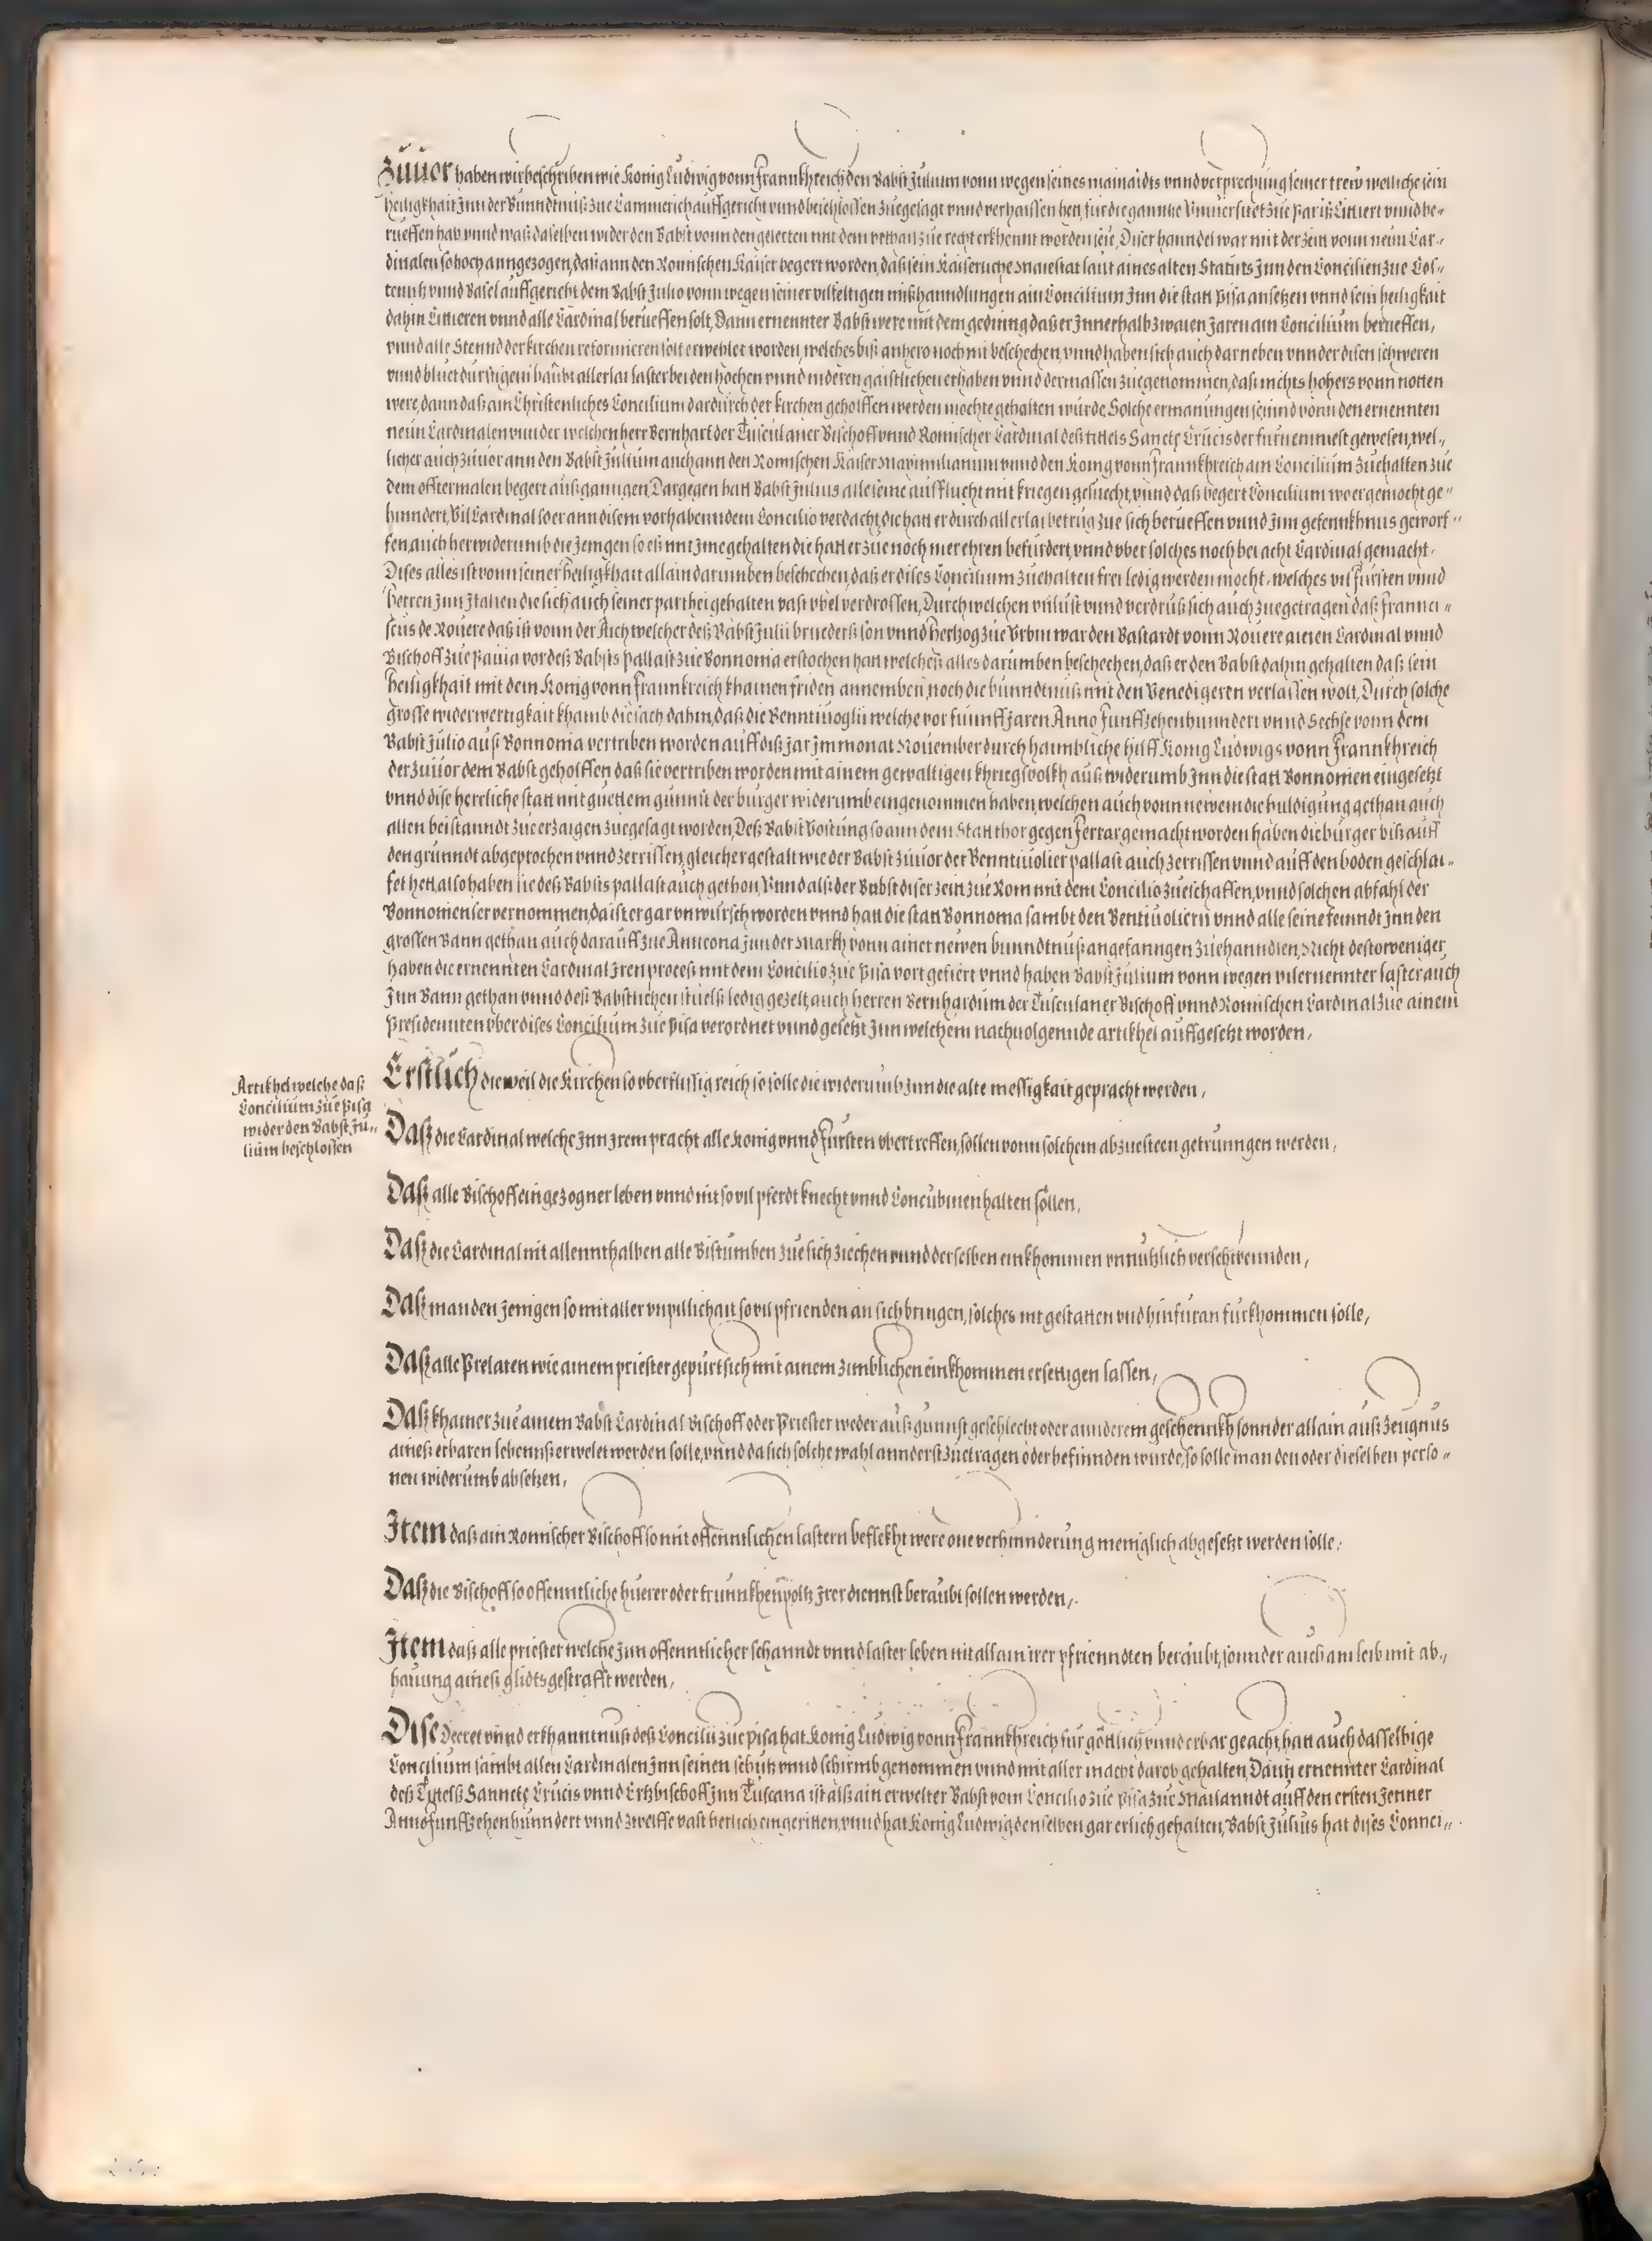 Zuuor haben wir beschriben wie Konig Ludwig vonn Frannkhreich den Babst Julium vonn wegen seines mainaidts vnnd verprechung seiner trew welliche sein
heiligkhait Jnn der Bunndtnuß zue Cammerich auffgericht vnnd beschlossen zuegesagt vnnd verhaissen hett, für die ganntze Vniuersitet zue Pariß Citiert vnnd be„
rueffen hab vnnd waß daselben wider den Babst vonn den gelerten mit dem vrthail zue recht erkhennt worden seie, Diser hanndel war mit der zeit vonn neun Car„
dinalen so hoch anngezogen, daß ann den Romischen Kaiser begert worden, daß sein Kaiserliche Maiestat laut aines alten Statuts Jnn den Concilien zue Cos„
tenitz vnnd Basel auffgericht dem Babst Julio vonn wegen seiner vilfeltigen mißhanndlungen ain Concilium Jnn die statt Pisa ansetzen vnnd sein heiligkait
dahin Citieren vnnd alle Cardinal berueffen solt, Dann ernennter Babst were mit dem geding daß er Jnnerhalb zwaien Jaren ain Concilium berueffen,
vnnd alle Stennd der kirchen reformieren solt erwehlet worden, welches biß anhero noch nit beschechen, vnnd haben sich auch darneben vnnder disen schweren
vnnd bluetdurstigem haubt allerlai laster bei den hochen vnnd nideren gaistlichen erhaben vnnd dermassen zuegenommen, daß nichts hohers vonn notten
were, dann daß ain Christenliches Concilium dardurch der kirchen geholffen werden mochte gehalten wurde, Solche ermanungen seind vonn den ernennten
neun Cardinalen vnnder welchen herr Bernhart der Tusculaner Bischoff vnnd Romischer Cardinal deß tittels Sancte Crucis der furnemmest gewesen, wel„
licher auch zuuor ann den Babst Julium auch ann den Romischen Kaiser Maximilianum vnnd den Konig vonn Frannkhreich ain Concilium zuehalten zue
dem offtermalen begert außganngen, Dargegen hatt Babst Julius alle seine außflucht mit kriegen gesuecht, vnnd daß begert Concilium wo er gemocht ge„
hinndert, Vil Cardinal so er ann disem vorhabenndem Concilio verdacht, die hatt er durch allerlai betrug zue sich berueffen vnnd Jnn gefennkhnus geworf„
fen, auch herwiderumb die Jenigen so eß mit Jme gehalten die hatt er zue noch mer ehren befurdert, vnnd vber solches noch bei acht Cardinal gemacht,
Dises alles ist vonn seiner heiligkhait allain darumben beschechen, daß er dises Concilium zuehalten frei ledig werden mocht, welches vil fursten vnnd
herren Jnn Jtalien die sich auch seiner parthei gehalten vast vbel verdrossen, Durch welchen vnlust vnnd verdruß sich auch zuegetragen daß Franci„
scus de Rouere daß ist vonn der Aich welcher deß Babst Julii brueders son vnnd Hertzog zue Vrbin war den Bastardt vonn Rouere ainen Cardinal vnnd
Bischoff zue Pauia vor deß Babsts pallast zue Bonnonia erstochen hatt welcheß alles darumben beschechen, daß er den Babst dahin gehalten daß sein
heiligkhait mit dem Konig vonn Frannkreich khainen friden annemben, noch die bunndtnuß mit den Venedigeren verlassen wolt, Durch solche
grosse widerwertigkait khamb die sach dahin, daß die Benntiuoglii welche vor funnff Jaren Anno Funffzehenhunndert vnnd Sechse vonn dem
Babst Julio auß Bonnonia vertriben worden auff diß Jar Jm monat Nouember durch haimbliche hilff Konig Ludwigs vonn Frannkhreich
der zuuor dem Babst geholffen daß sie vertriben worden mit ainem gewaltigen khriegsvolkh auß widerumb Jnn die statt Bonnonien eingesetzt
vnnd dise herrliche statt mit guettem gunnst der burger widerumb eingenommen haben, welchen auch vonn newem die huldigung gethan auch
allen beistanndt zue erzaigen zuegesagt worden, Deß Babst Vostung so ann dem Statt thor gegen Ferrar gemacht worden haben die burger biß auff
den grunndt abgeprochen vnnd zerrissen, gleicher gestalt wie der Babst zuuor der Benntiuolier pallast auch zerrissen vnnd auff den boden geschlai„
fet hett, also haben sie deß Babsts pallast auch gethon, Vnnd alß der Babst diser zeit zue Rom mit dem Concilio zueschaffen, vnnd solchen abfahl der
Bonnonienser vernommen, da ist er gar vnwirsch worden vnnd hatt die statt Bonnonia sambt den Bentiuoliern vnnd alle seine feinndt Jnn den
grossen Bann gethan auch darauff zue Annconia Jnn der Markh vonn ainer newen bunndtnuß angefanngen zuehanndlen, Nicht destoweniger
haben die ernennten Cardinal Jren proceß mit dem Concilio zue Pisa vort gefiert vnnd haben Babst Julium vonn wegen vilernennter laster auch
Jnn Bann gethan vnnd deß Babstlichen stuelß ledig gezelt, auch herren Bernhardum der Tusculaner Bischoff vnnd Romischen Cardinal zue ainem
Presidennten vber dises Concilium zue Pisa verordnet vnnd gesetzt Jnn welchem nachuolgennde artikhel auffgesetzt worden,
Artikhel welche daß
Concilium zue Pisa
wider den Babst Ju„
lium beschlossen
Erstlich dieweil die Kirchen so vberflissig reich so solle die widerumb Jnn die alte messigkait gepracht werden,
Daß die Cardinal welche Jnn Jrem pracht alle Konig vnnd Fursten vbertreffen, sollen vonn solchem abzuesteen getrunngen werden,
Daß alle Bischoff eingezogner leben vnnd nit so vil pferdt knecht vnnd Concubinen halten sollen,
Daß die Cardinal nit allennthalben alle Bistumben zue sich ziechen vnnd derselben einkhommen vnnutzlich verschwennden,
Daß man den Jenigen so mit aller vnpillichait so vil pfrienden an sich bringen, solches nit gestatten vnd hinfuran furkhommen solle,
Daß alle Prelaten wie ainem priester gepurt sich mit ainem zimblichen einkhommen ersettigen lassen,
Daß khainer zue ainem Babst Cardinal Bischoff oder Priester weder auß gunnst geschlecht oder annderem geschennkh sonnder allain auß Zeugnus
aineß erbaren lebennß erwelet werden solle, vnnd da sich solche wahl annderst zuetragen oder befinnden wurde, so solle man den oder dieselben perso„
nen widerumb absetzen,
Jtem daß ain Romischer Bischoff so mit offenntlichen lastern beflekht were one verhinnderung meniglich abgesetzt werden solle,
Daß die Bischoff so offenntliche huerer oder trunnkhenpoltz Jrer diennst beraubt sollen werden,
Jtem daß alle priester welche Jnn offenntlicher schanndt vnnd laster leben nit allain irer pfriendten beraubt, sonnder auch am leib mit ab„
hauung aineß glidts gestrafft werden,
Dise Decret vnnd erkhanntnuß deß Concilii zue Pisa hat Konig Ludwig vonn Frannkhreich fur göttlich vnnd erbar geacht, hatt auch dasselbige
Concilium sambt allen Cardinalen Jnn seinen schutz vnnd schirmb genommen vnnd mit aller macht darob gehalten, Dann ernennter Cardinal
deß Tittelß Sannctę Crucis vnnd Ertzbischoff Jnn Tuscana ist alß ain erwelter Babst vom Concilio zue Pisa zue Mailanndt auff den ersten Jenner
Anno Funffzehenhunndert vnnd Zwelffe vast herlich eingeritten, vnnd hat Konig Ludwig denselben gar erlich gehalten, Babst Julius hat dises Conci„